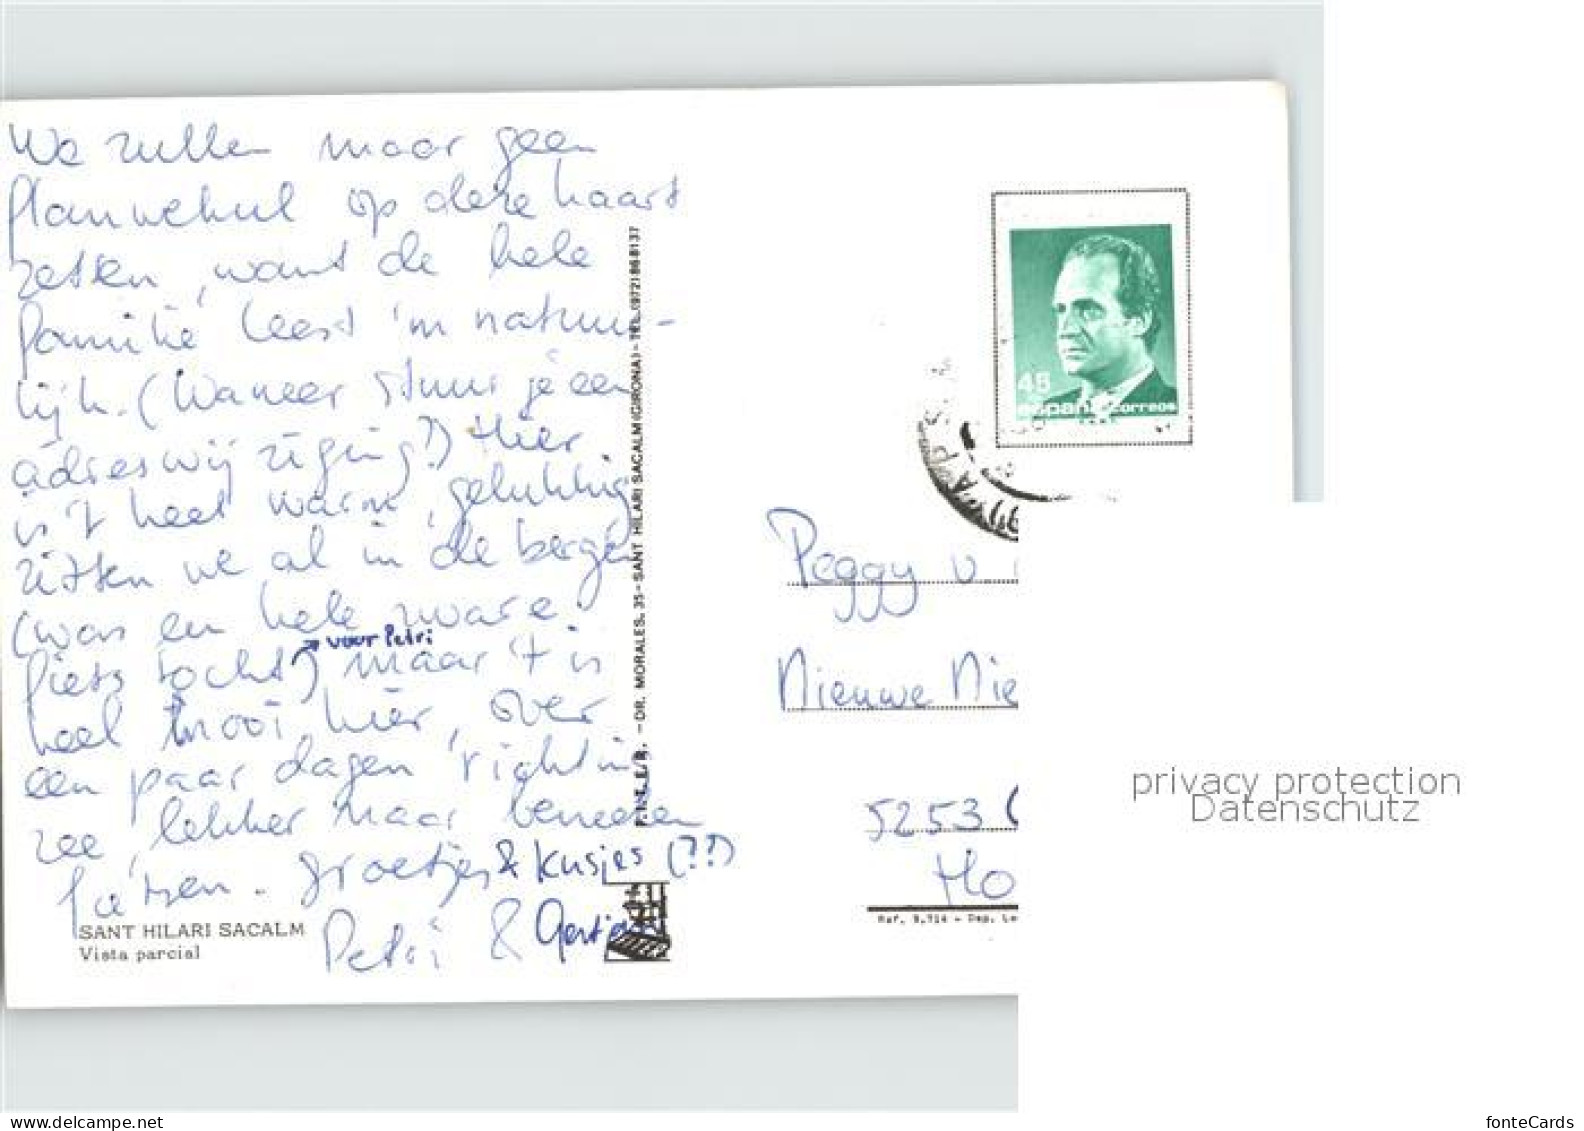 We zullen maar geen
flauwekul op deze kaart
zetten, want de hele
familie leest 'm natuur-
lijk. (Wanneer stuur je een
adreswijziging?) Hier
is 't heet warm, gelukkig
zitten we al in de bergen
(was en hele zware
fiets tocht) maar 't is
voor Petri
heel mooi hier, over
een paar dagen richting
zee, lekker naar beneden
fietsen. Groetjes & Kusjes (??)
Petri & Gertjan
SANT HILARI SACALM
Vista parcial
F.I.S.E.R. - DR. MORALES, 35 - SANT HILARI SACALM (GIRONA) - TEL. (972) 868137
48
españa correos
Peggy v.
Nieuwe Nie
5253
Ho
Ref. 9.714 - Dep. Le
privacy protection
Datenschutz
www.delcampe.net
fonteCards